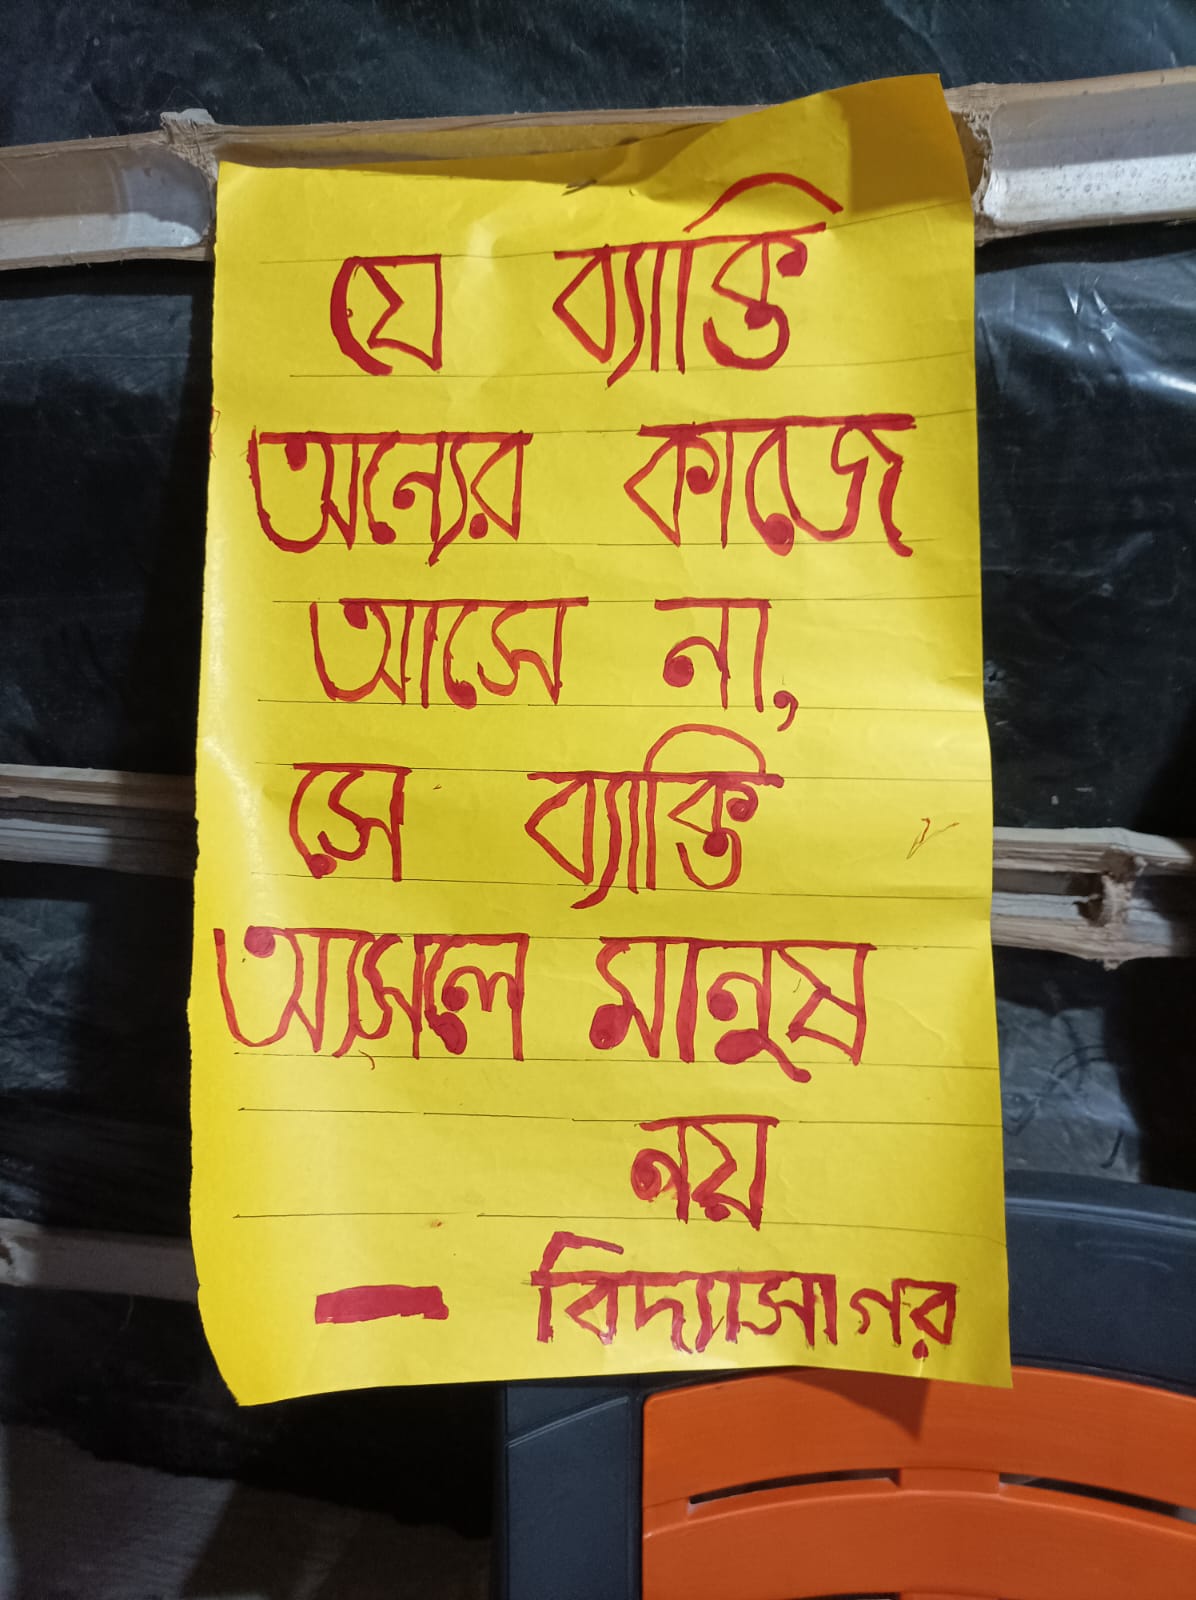 যে ব্যাক্তি
অন্যের কাজে
আসে না,
সে ব্যাক্তি
আসলে মানুষ
নয়
– বিদ্যাসাগর